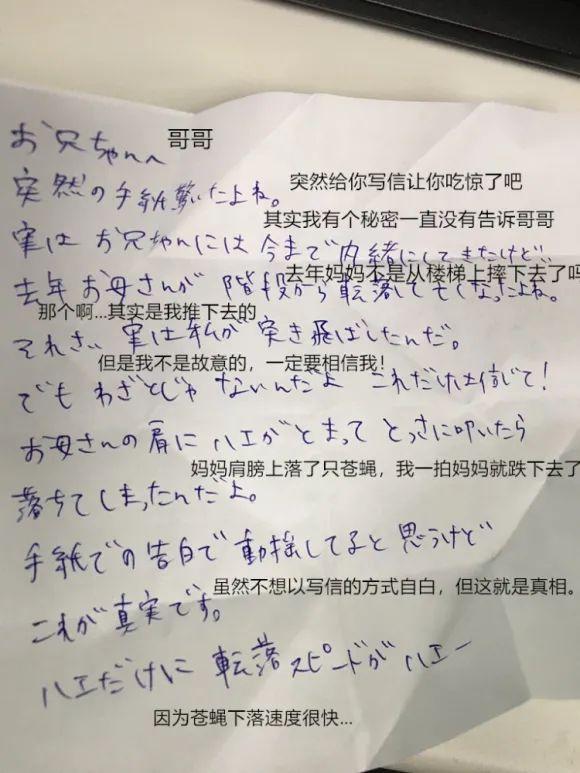 お兄ちゃんへ
哥哥
突然の手紙驚いたよね。
突然给你写信让你吃惊了吧
其实我有个秘密一直没有告诉哥哥
実はお兄ちゃんには今まで内緒にしてきたけど、
去年妈妈不是从楼梯上摔下去了吗
去年お母さんが階段から転落して亡くなったよね。
那个啊...其实是我推下去的
それさ、実は私が突き飛ばしたんだ。
但是我不是故意的，一定要相信我！
でもわざとじゃないんだよ これだけは信じて！
お母さんの肩にハエがとまって とっさに叩いたら
妈妈肩膀上落了只苍蝇，我一拍妈妈就跌下去了
落ちてしまったんだよ。
手紙での告白で動揺してると思うけど
虽然不想以写信的方式自白，但这就是真相。
これが真実です。
ハエだけに 転落スピードがハエー
因为苍蝇下落速度很快...